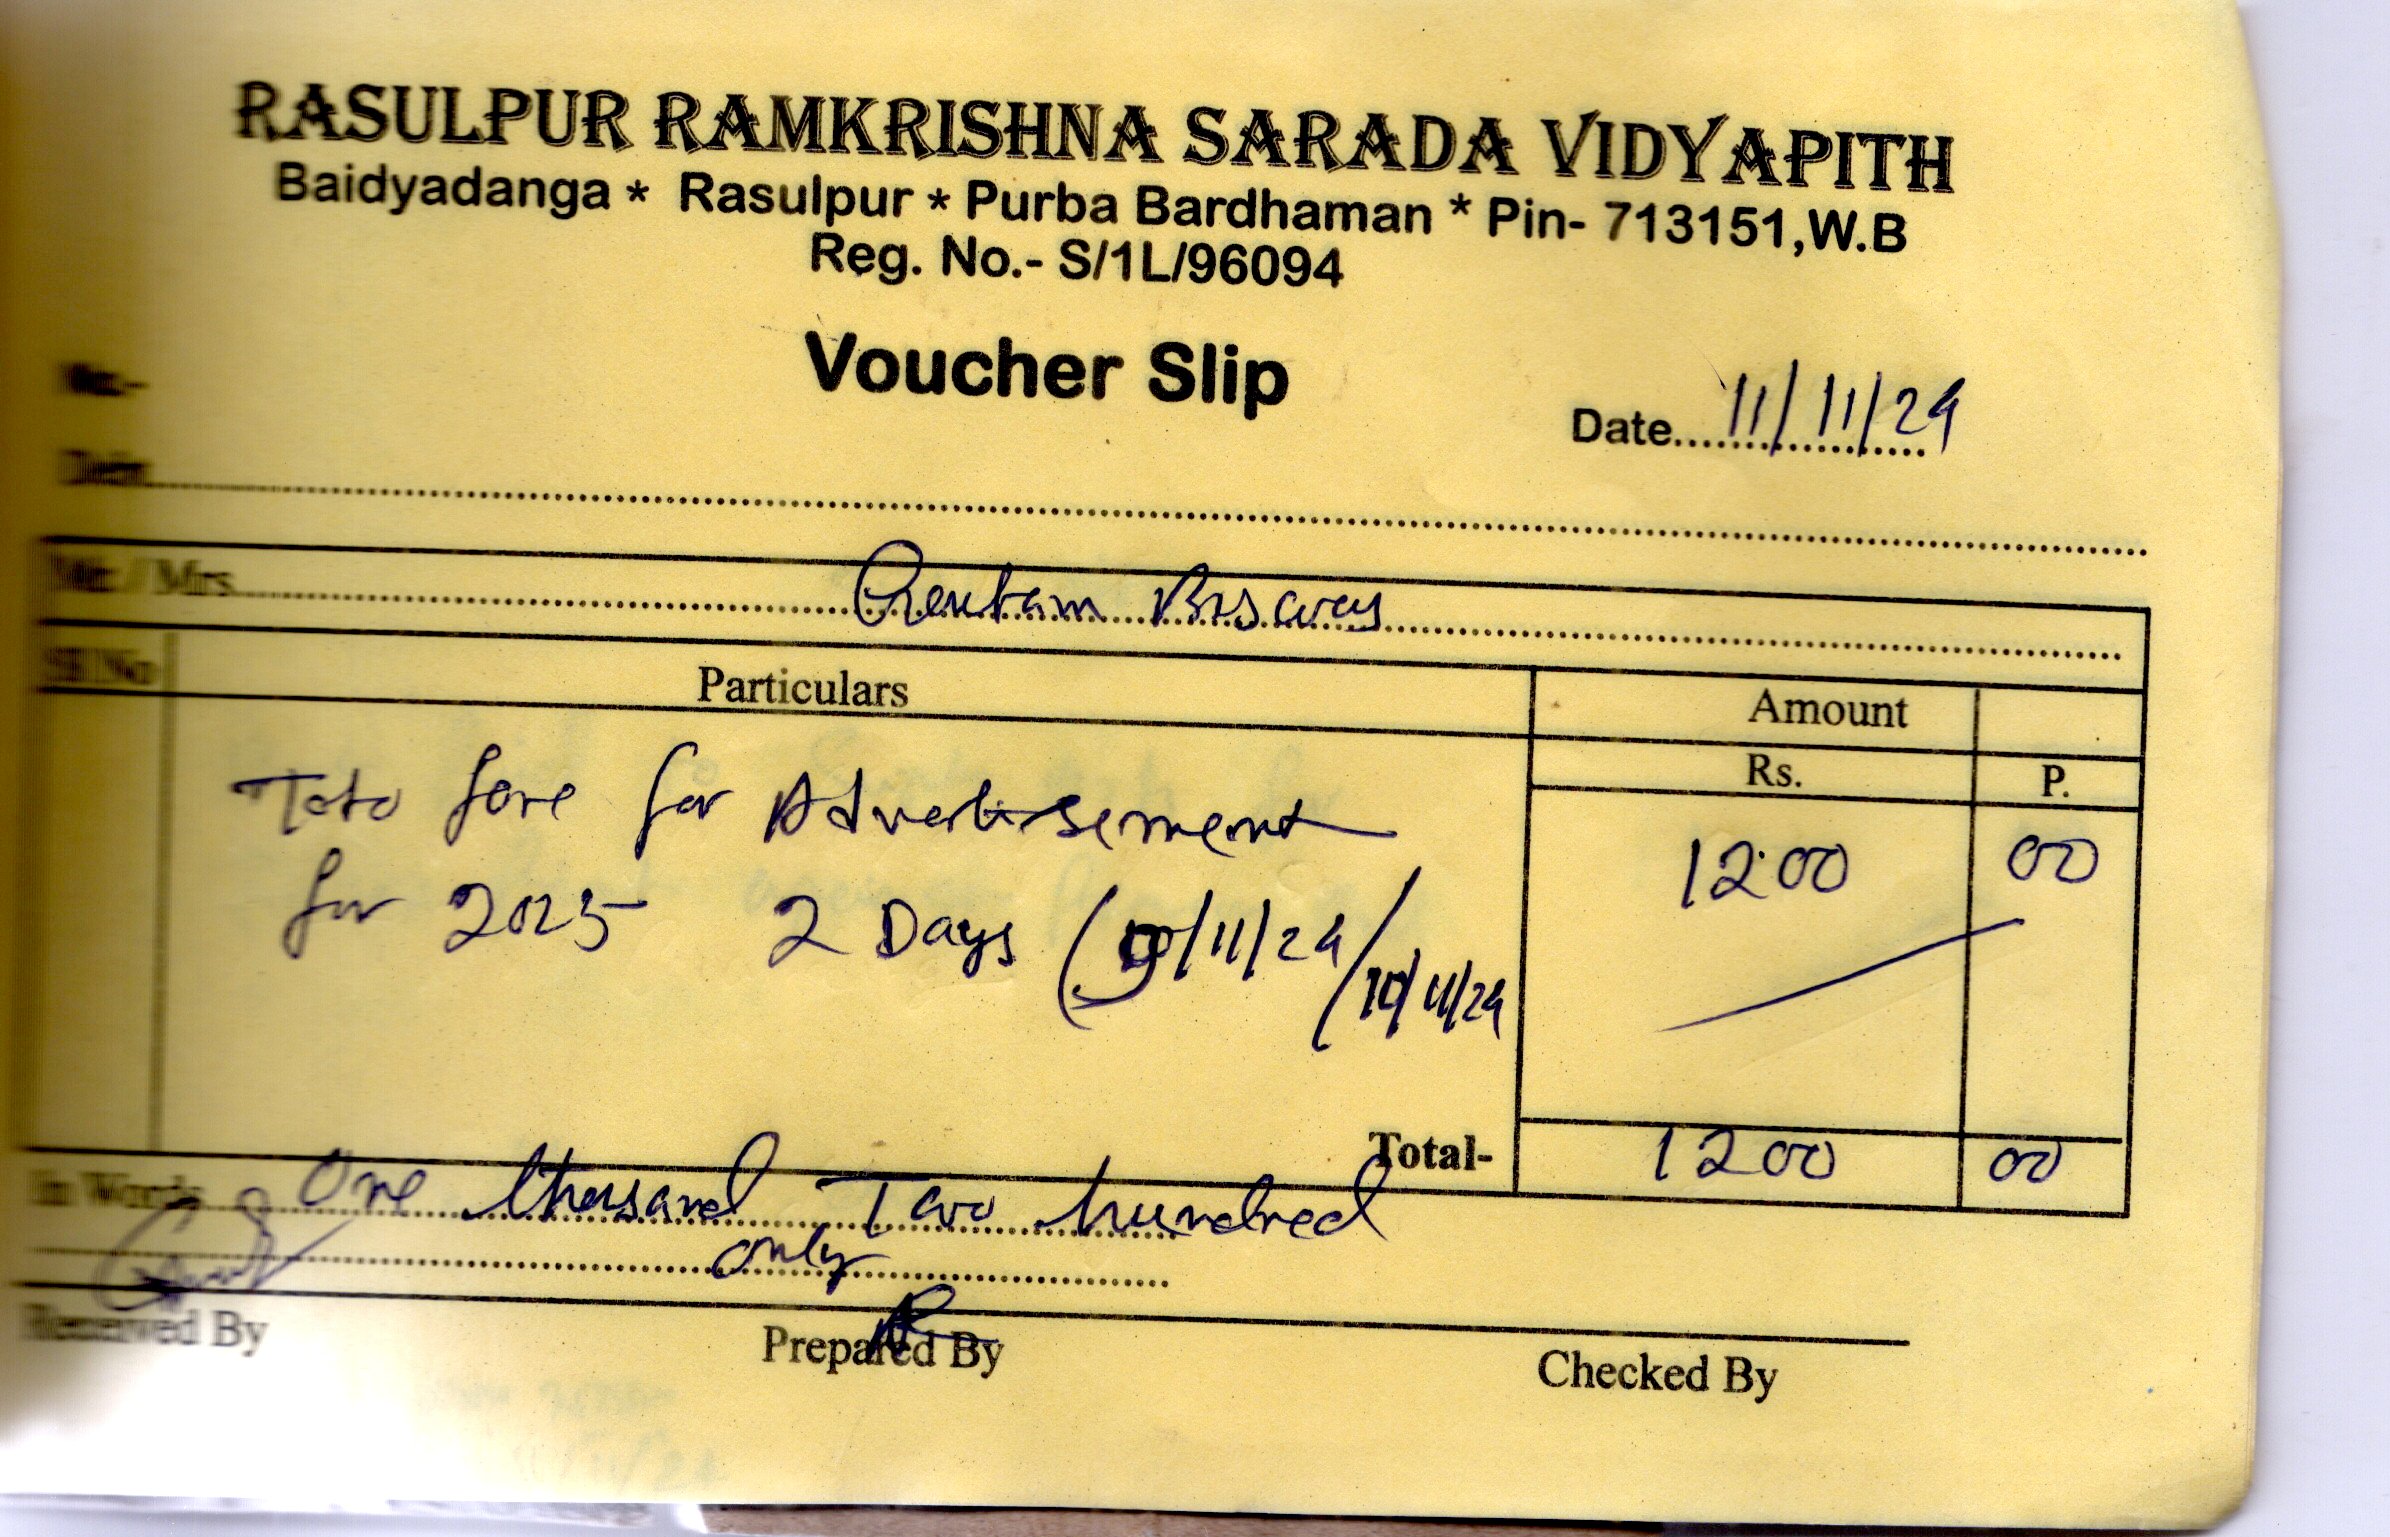 RASULPUR RAMKRISHNA SARADA VIDYAPITH
Baidyadanga * Rasulpur * Purba Bardhaman * Pin- 713151, W.B
Reg. No.- S/1L/96094
Voucher Slip
No.-
Date.... 11/11/24
Debit
Mr. / Mrs.
Sl. No Particulars Amount
Rs. P.
Toto fare for Advertisement 1200 00
for 2025 2 Days (9/11/24 / 10/11/24
Total- 1200 00
In Words One thousand Two hundred
only
Received By Prepared By Checked By